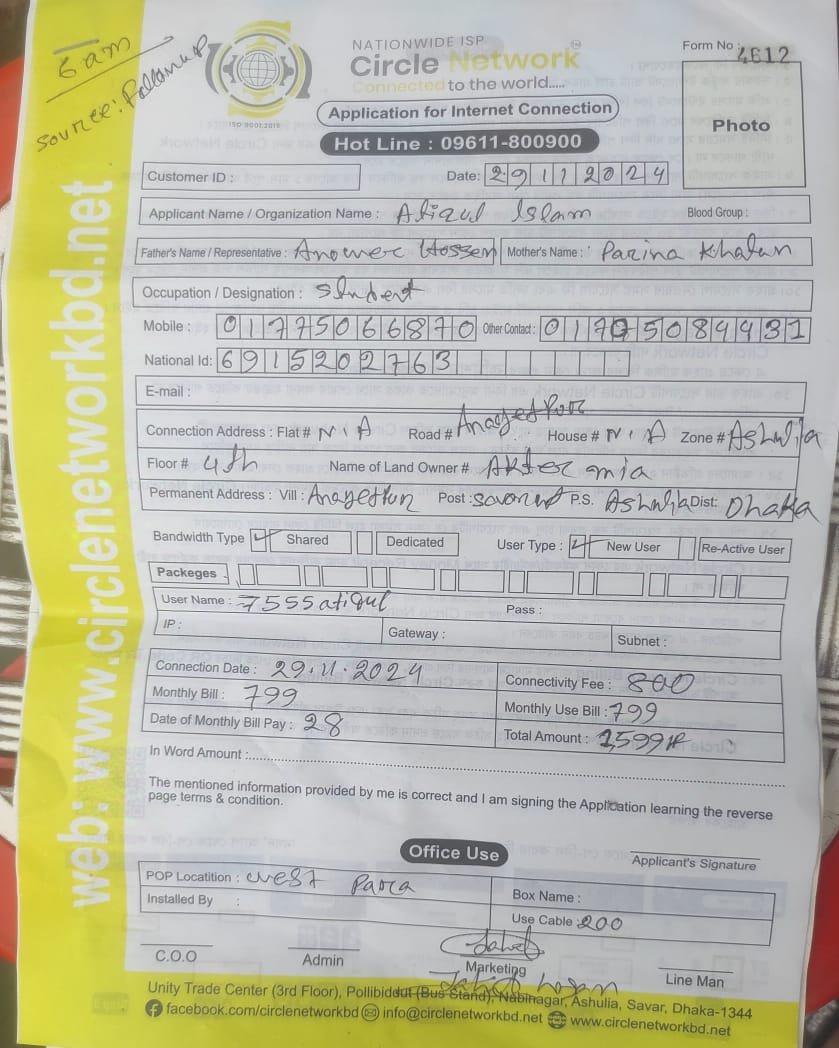 6 am
Source: Followup
ISO 9001:2015
NATIONWIDE ISP
Circle Network
Connected to the world.....
Application for Internet Connection
Hot Line : 09611-800900
Form No : 4612
Photo
web: www.circlenetworkbd.net
Customer ID :
Date: 29112024
Applicant Name / Organization Name : Atiqul Islam Blood Group :
Father's Name / Representative : Anower Hossen Mother's Name : Parina Khatun
Occupation / Designation : Student
Mobile : 01775066870 Other Contact : 01705084431
National Id: 6915202763
E-mail :
Connection Address : Flat # N.A Road # Anayetpur House # N.A Zone # Ashulia
Floor # 4th Name of Land Owner # Akter mia
Permanent Address : Vill : Anayetpur Post : P.S. Ashulia Dist: Dhaka
Bandwidth Type Shared Dedicated User Type : New User Re-Active User
Packeges :
User Name : 7555atiqul Pass :
IP : Gateway : Subnet :
Connection Date : 29.11.2024 Connectivity Fee : 800
Monthly Bill : 799 Monthly Use Bill : 799
Date of Monthly Bill Pay : 28 Total Amount : 1,599
In Word Amount :
The mentioned information provided by me is correct and I am signing the Application learning the reverse
page terms & condition.
Office Use
Applicant's Signature
POP Locatition : west Parca Box Name :
Installed By : Use Cable : 200
C.O.O Admin Marketing Line Man
Unity Trade Center (3rd Floor), Pollibiddut (Bus Stand), Nabinagar, Ashulia, Savar, Dhaka-1344
facebook.com/circlenetworkbd info@circlenetworkbd.net www.circlenetworkbd.net